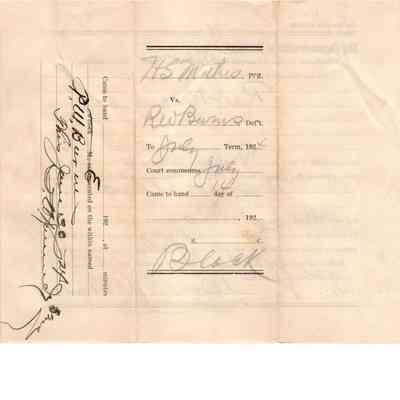 H S Mathis PTff.
Vs.
Red Burns Def't.
To July Term, 1924
Court commences July
Came to hand 14 day of
, 192
Block
Came to hand 192 , at minutes
executed on the within named
P. W. Burns
This June 30 24